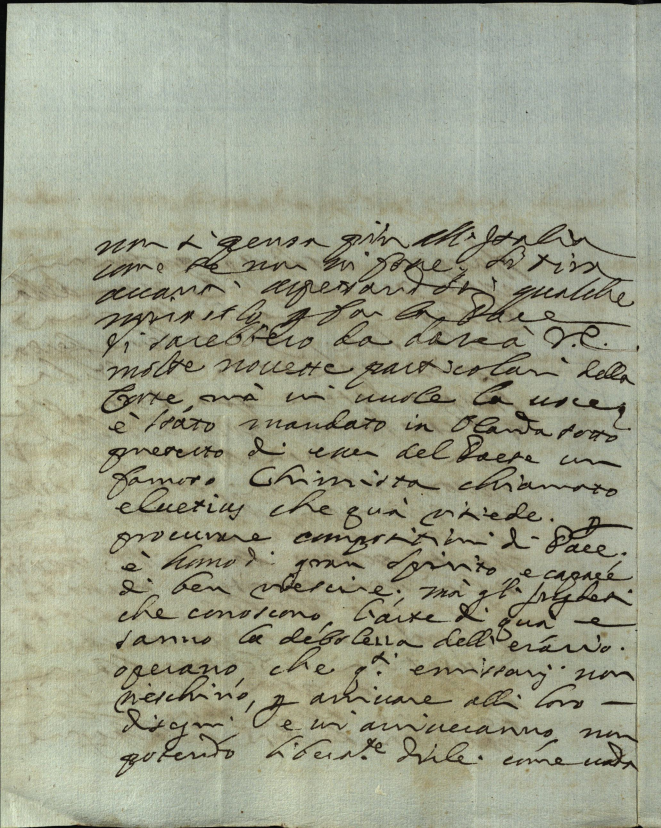 non si pensa più all'Italia
come se non vi fosse, si tira
avanti aspettandosi qualche
p far la Pace
vi sarebbero da dare à V.E.
molte novette particolari della
Corte mà vi vuole la voce
è stato mandato in Olanda sotto
pretesto di esser del Paese un
famoso Chimista chiamato
eluetius che quà risiede. p
procurare compositioni di Pace,
è homo di gran spirito e capace
di ben riescire. mà gl'Inglesi
che conoscono l'arte di quà e
sanno la debolezza dell'erario.
operano, che q.ti emissarj non
rieschino, p arrivare alli loro
disegni e vi arriveranno, non
potendo liberam.te dirle. come vada